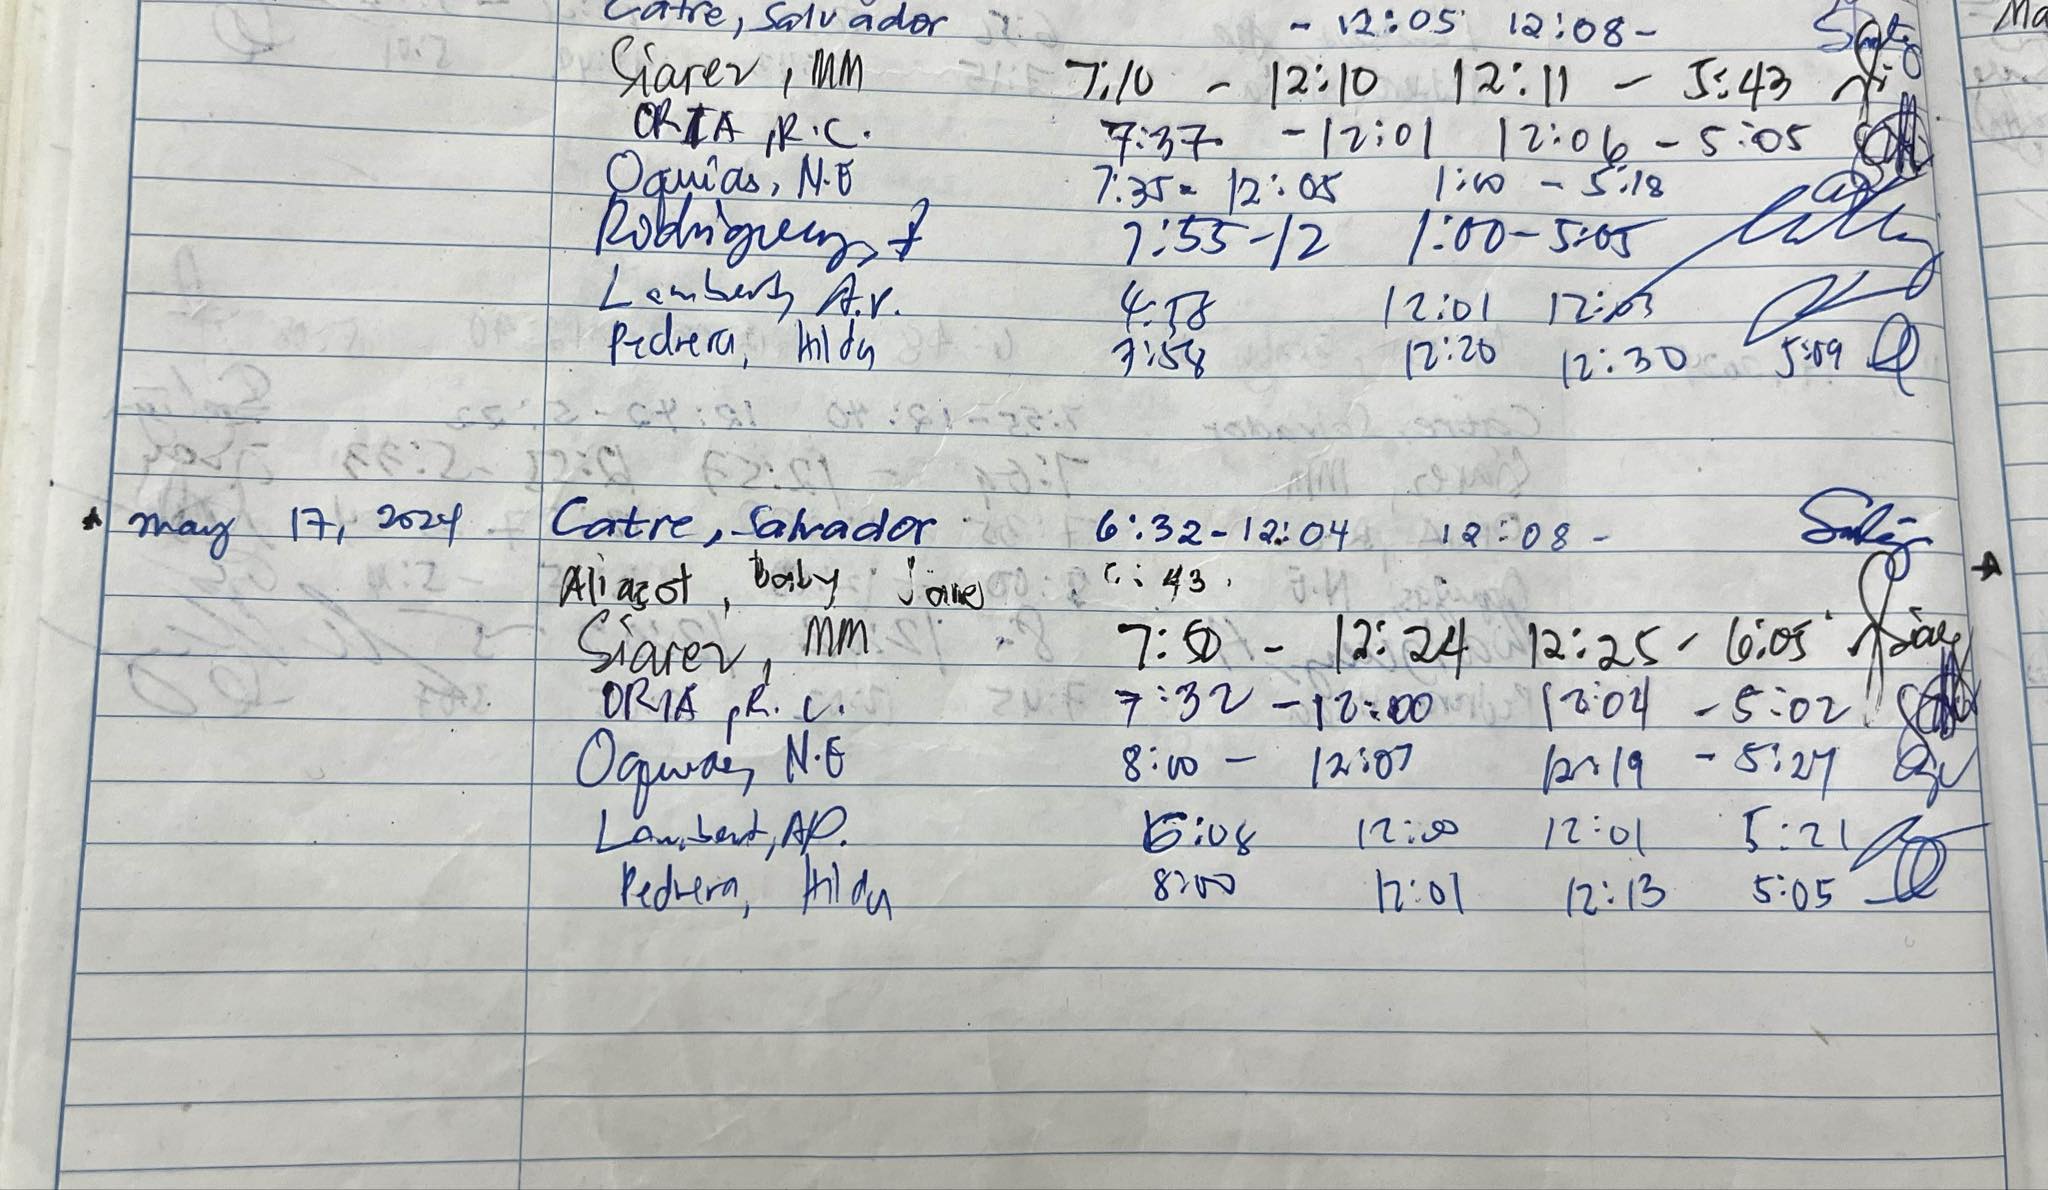 Catre, Salvador - 12:05 12:08 -
Siarez, MM 7:10 - 12:10 12:11 - 5:43
ORIA, R.C. 7:37 - 12:01 12:06 - 5:05
Oquias, N.E 7:35 - 12:05 1:00 - 5:18
Rodriguez, J 7:55-12 1:00-5:05
Lambert, A.P. 4:58 12:01 12:03
Pedrera, Hilda 7:58 12:20 12:30 5:09
May 17, 2024 Catre, Salvador 6:32-12:04 12:08 -
Aliazot, baby :43
Siarez, MM 7:50 - 12:24 12:25 - 6:05
ORIA, R.C. 7:32 - 12:00 12:04 - 5:02
Oquias, N.E 8:00 - 12:07 12:19 - 5:27
Lambert, AP. 6:08 12:00 12:01 5:21
Pedrera, Hilda 8:00 12:01 12:13 5:05
Ma